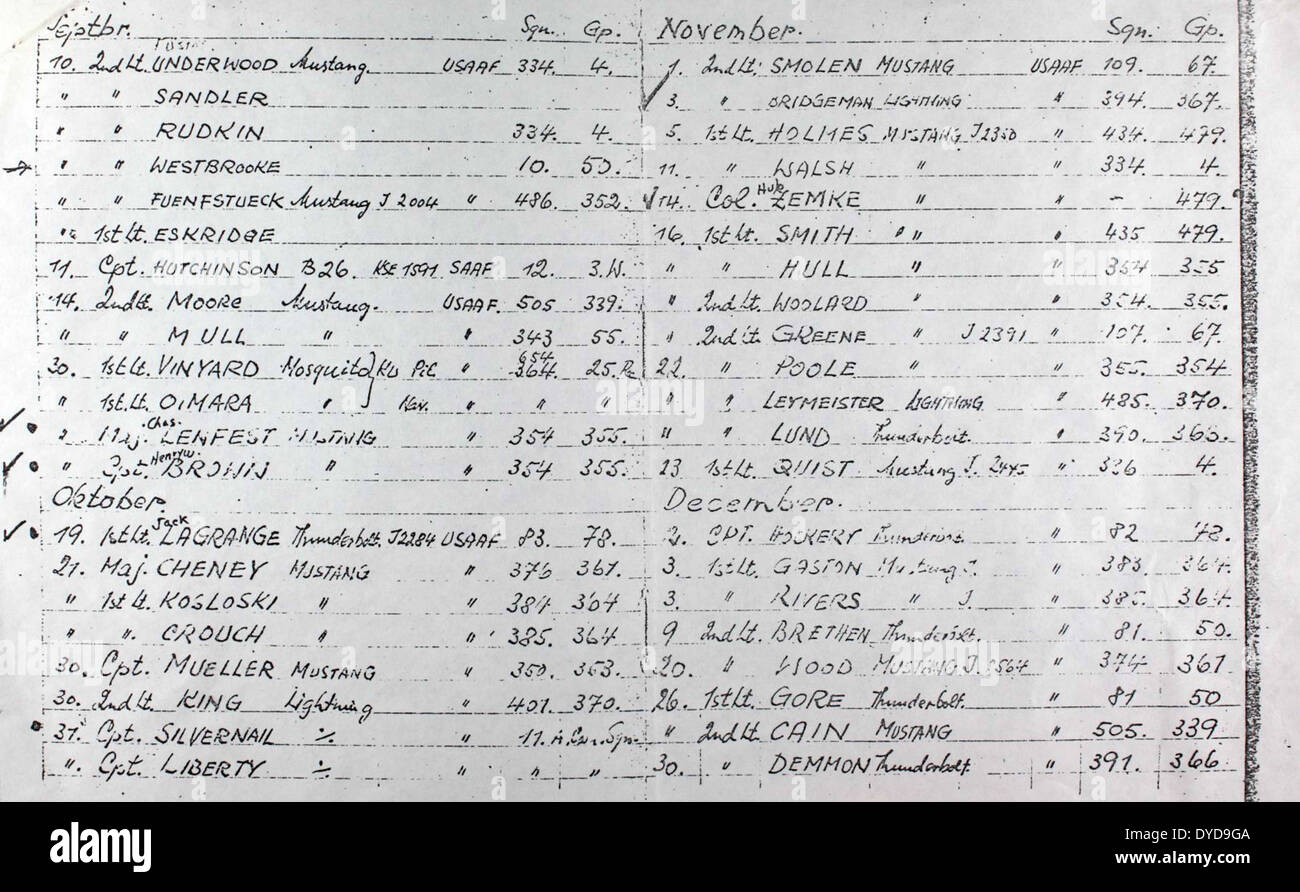 Septbr. Sqn. Gp.
10. 2nd Lt. UNDERWOOD Mustang. USAAF 334. 4.
" " SANDLER
" " RUDKIN 334. 4.
" " WESTBROOKE 10. 50.
" " FUENFSTUECK Mustang J 2004 " 486. 352.
" 1st Lt. ESKRIDGE
11. Cpt. HUTCHINSON B26. KSE 1591 SAAF 12. 3.W.
14. 2nd Lt. MOORE Mustang. USAAF 505 339.
" " MULL " " 343 55.
30. 1st Lt. VINYARD Mosquito " 654 25.
" 1st Lt. OIMARA " Nav. " " "
2 Maj. Chas. LENFEST MUSTANG " 354 355.
" Cpt. Henry W. BROWN " " 354 355.
Oktober.
19. 1st Lt. Jack LAGRANGE Thunderbolt. J2284 USAAF 83. 78.
21. Maj. CHENEY MUSTANG " 376 361.
" 1st Lt. KOSLOSKI " " 384 364
" ". CROUCH " " 385. 364.
30. Cpt. MUELLER MUSTANG " 350. 353.
30. 2nd Lt. KING Lightning " 401. 370.
31. Cpt. SILVERNAIL ∙/∙ " 11.
". Cpt. LIBERTY ∙/∙ " " "
November. Sqn. Gp.
1. 2nd Lt. SMOLEN MUSTANG USAAF 109. 67.
3. " BRIDGEMAN LIGHTNING " 394. 367.
5. 1st Lt. HOLMES MUSTANG J2350 " 434. 479.
11. " WALSH " " 334. 4.
14. Col. Hub ZEMKE " " - 479.
16. 1st Lt. SMITH " " 435 479.
" " HULL " " 354 355
" 2nd Lt. WOOLARD " " 354. 355.
" 2nd Lt. GREENE " J 2391 " 107. 67.
22. " POOLE " " 355. 354
" " LEYMEISTER LIGHTNING " 485. 370.
" " LUND Thunderbolt. " 390.
23 1st Lt. QUIST Mustang J. 2445 " 336 4.
December.
2. CPT. HOCKERY Thunderbolt " 82 78.
3. 1st Lt. GASTON Mustang J. " 383. 364.
3. " RIVERS " J. " 385. 364.
9 2nd Lt. BRETHEN Thunderbolt. " 81. 50.
20. " WOOD MUSTANG J. 2564 " 374 361
26. 1st Lt. GORE Thunderbolt. " 81 50
" 2nd Lt. CAIN MUSTANG " 505. 339
30. " DEMMON Thunderbolt. " 391. 366
alamy
a
alamy
www.alamy.com
Image ID: DYD9GA